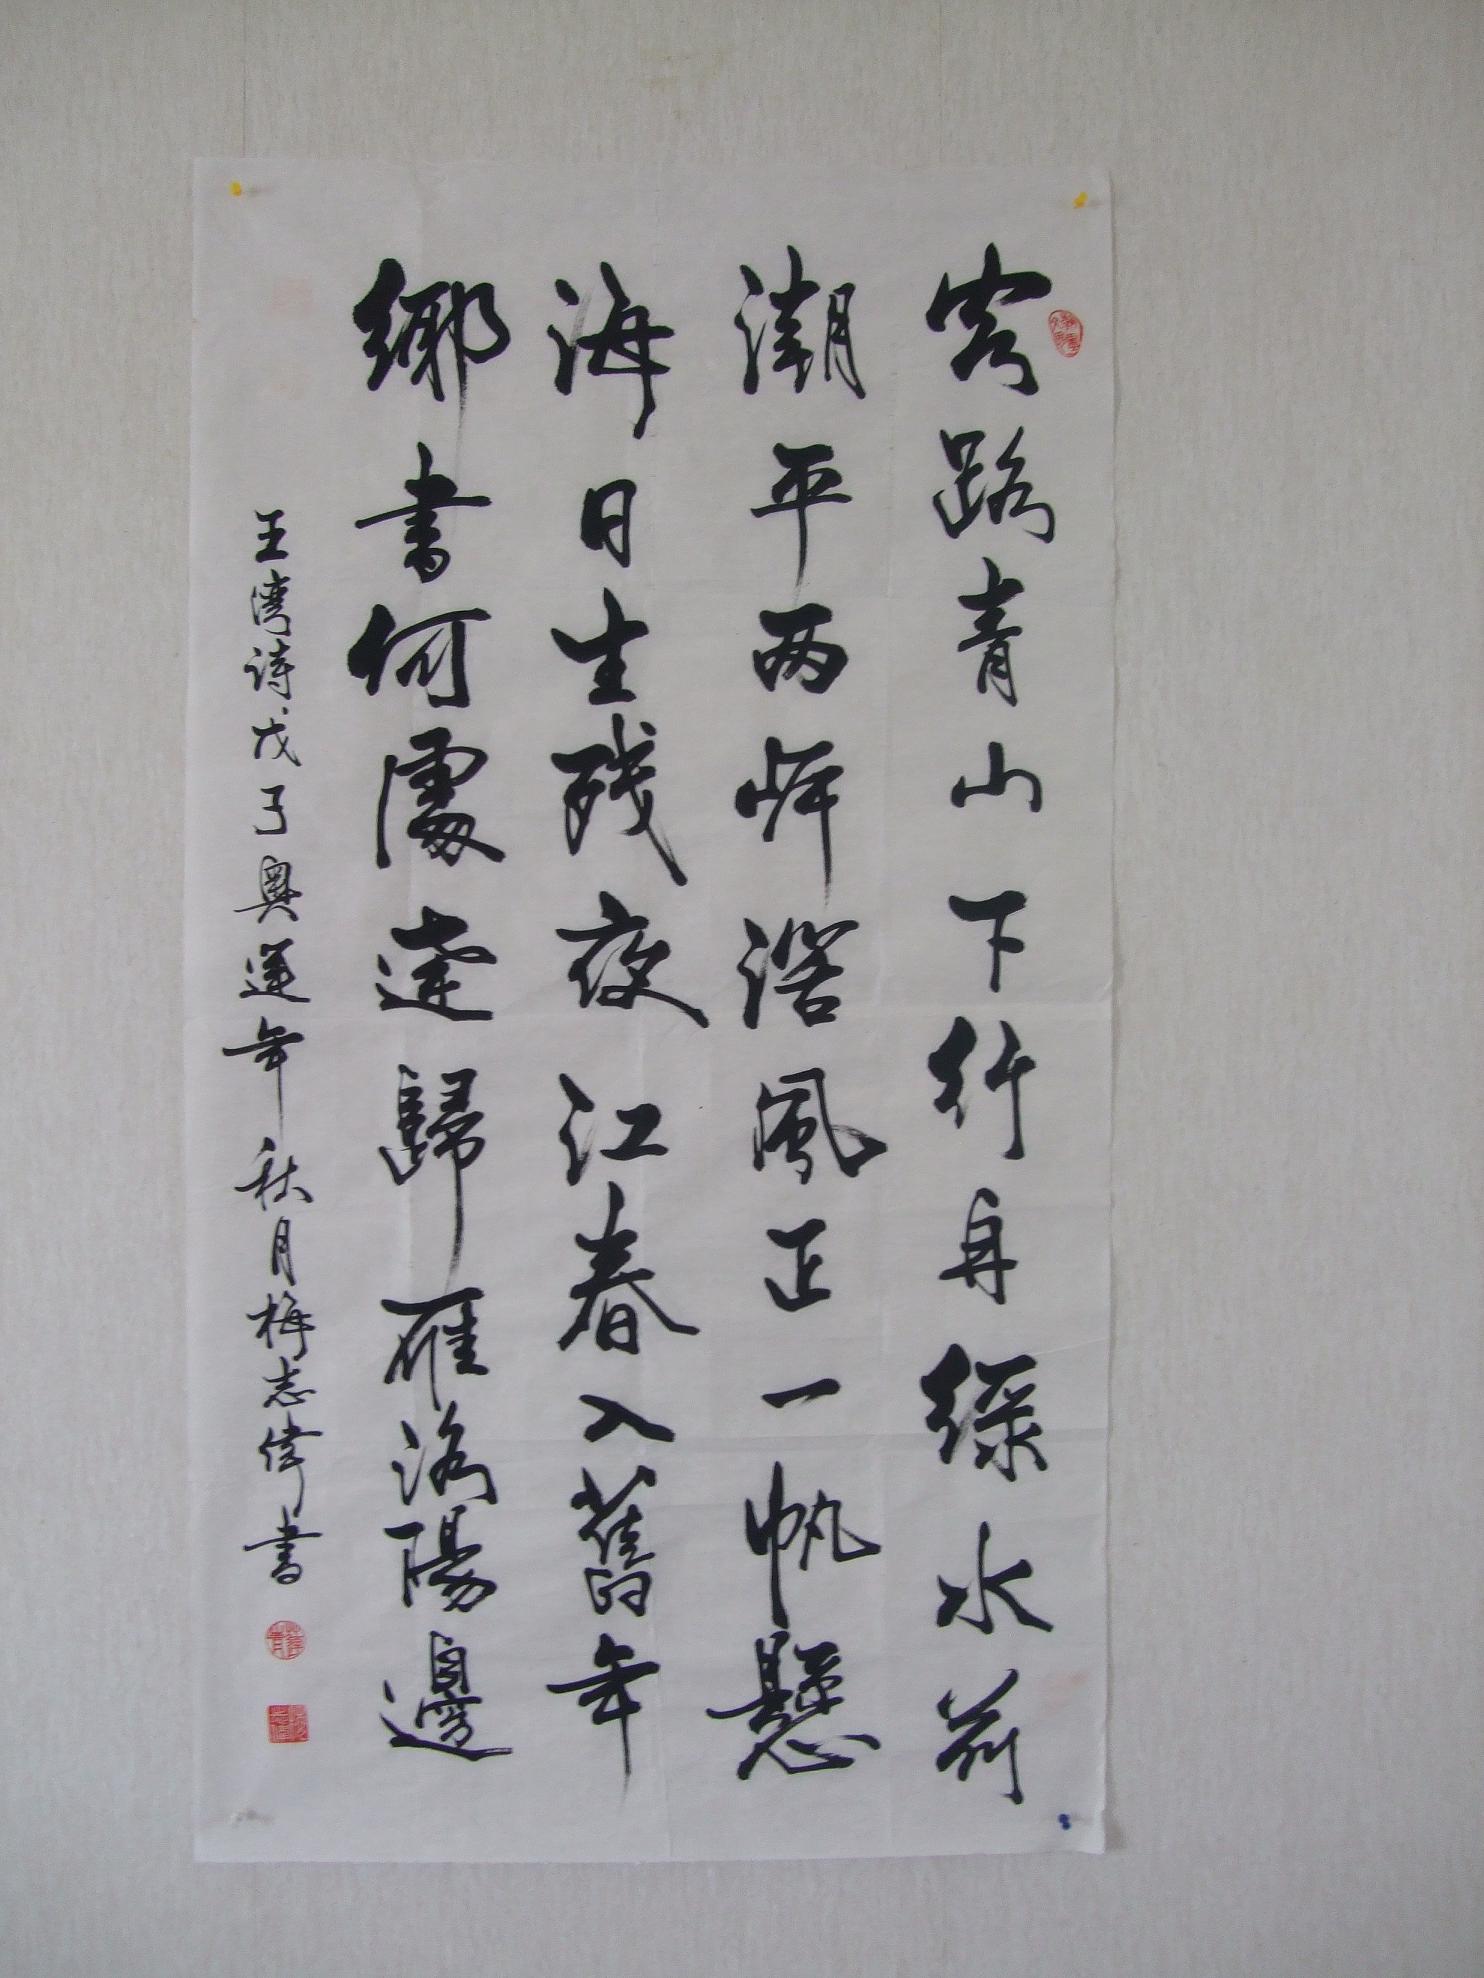 客路青山下行舟綠水前
潮平两岸濶風正一帆懸
海日生残夜江春入舊年
鄉書何處達歸雁洛陽邊
王湾诗戊子奥運年秋月梅志偉書